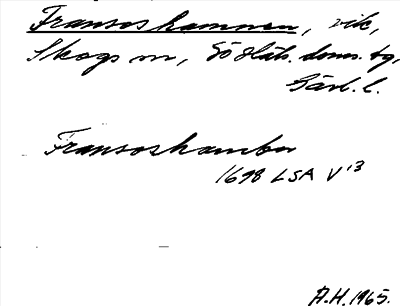 Fransoshamnen, vik,
Skogs sn, Södhäls. doms. tg,
Gävl. l.
Fransoshambn
1698 LSA V 13
A.H. 1965.